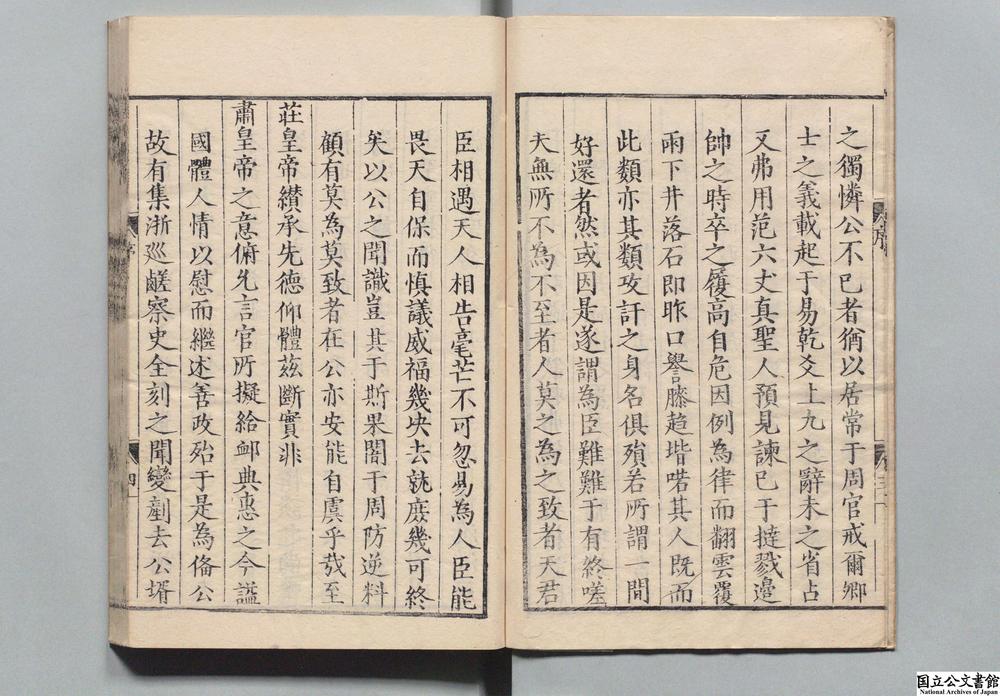 之獨憐公不已者猶以居常于周官戒爾卿
士之義載起于易乾爻上九之辭未之省占
又弗用范六丈真聖人預見諫已于撻戮邉
帥之時卒之履高自危因例為律而翻雲覆
雨下井落石即昨口譽膝趨堦喏其人既而
此類亦其類攻訐之身名俱殞若所謂一間
好還者然或因是遂謂為臣難難于有終嗟
夫無所不為不至者人莫之為之致者天君
臣相遇天人相告毫芒不可忽易為人臣能
畏天自保而慎議威福幾決去就庶幾可終
矣以公之聞識豈其于斯果闇于周防逆料
顧有莫為莫致者在公亦安能自虞乎哉至
莊皇帝纉承先德仰體茲斷實非
肅皇帝之意俯允言官所擬給卹典惠之今謚
國體人情以慰而繼述善政殆于是為俻公
故有集浙巡鹺察史全刻之聞變剷去公壻
序
四
国立公文書館
National Archives of Japan